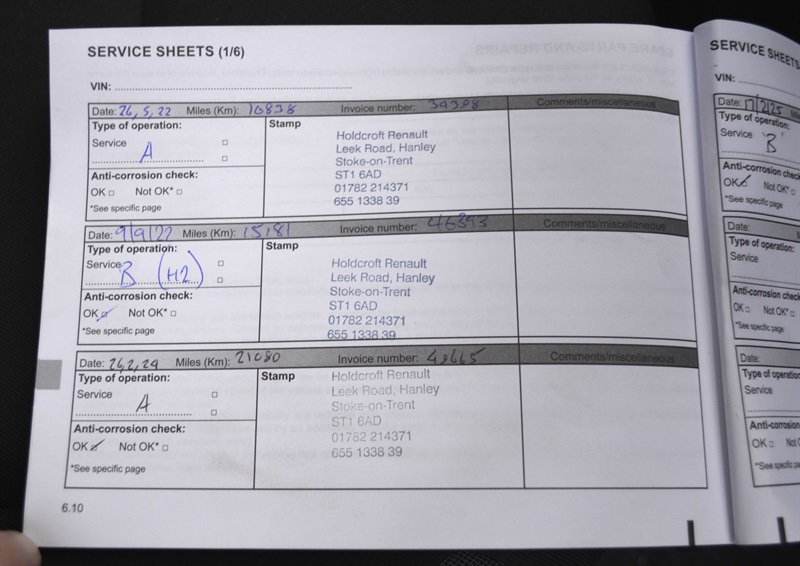 SERVICE SHEETS (1/6)
VIN:
Date: 26,5,22 Miles (Km): 10838 Invoice number: 39308 Comments/miscellaneous
Type of operation:
Stamp
Service
A
Anti-corrosion check:
OK Not OK*
*See specific page
Holdcroft Renault
Leek Road, Hanley
Stoke-on-Trent
ST1 6AD
01782 214371
655 1338 39
Date: 9/9/22 Miles (Km): 15181 Invoice number: 46393 Comments/miscellaneous
Type of operation:
Stamp
Service
B (H2)
Anti-corrosion check:
OK Not OK*
*See specific page
Holdcroft Renault
Leek Road, Hanley
Stoke-on-Trent
ST1 6AD
01782 214371
655 1338 39
Date: 26,2,24 Miles (Km): 21080 Invoice number: Comments/miscellaneous
Type of operation:
Stamp
Service
A
Anti-corrosion check:
OK Not OK*
*See specific page
Holdcroft Renault
Leek Road, Hanley
Stoke-on-Trent
ST1 6AD
01782 214371
655 1338 39
6.10
SERVICE SHEETS
VIN:
Date: 17/2/25
Type of operation:
Service
'B'
Anti-corrosion check
OK Not OK*
*See specific page
Date:
Type of operation:
Service
Anti-corrosion check
OK Not OK*
*See specific page
Date:
Type of operation:
Service
Anti-corrosion
OK
*See specific